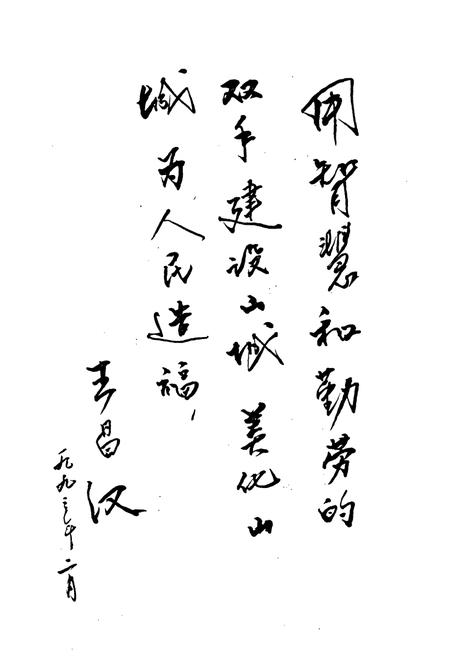 用智慧和勤劳的
双手建设山城美化山
城为人民造福，
王昌汉
一九九三年十二月